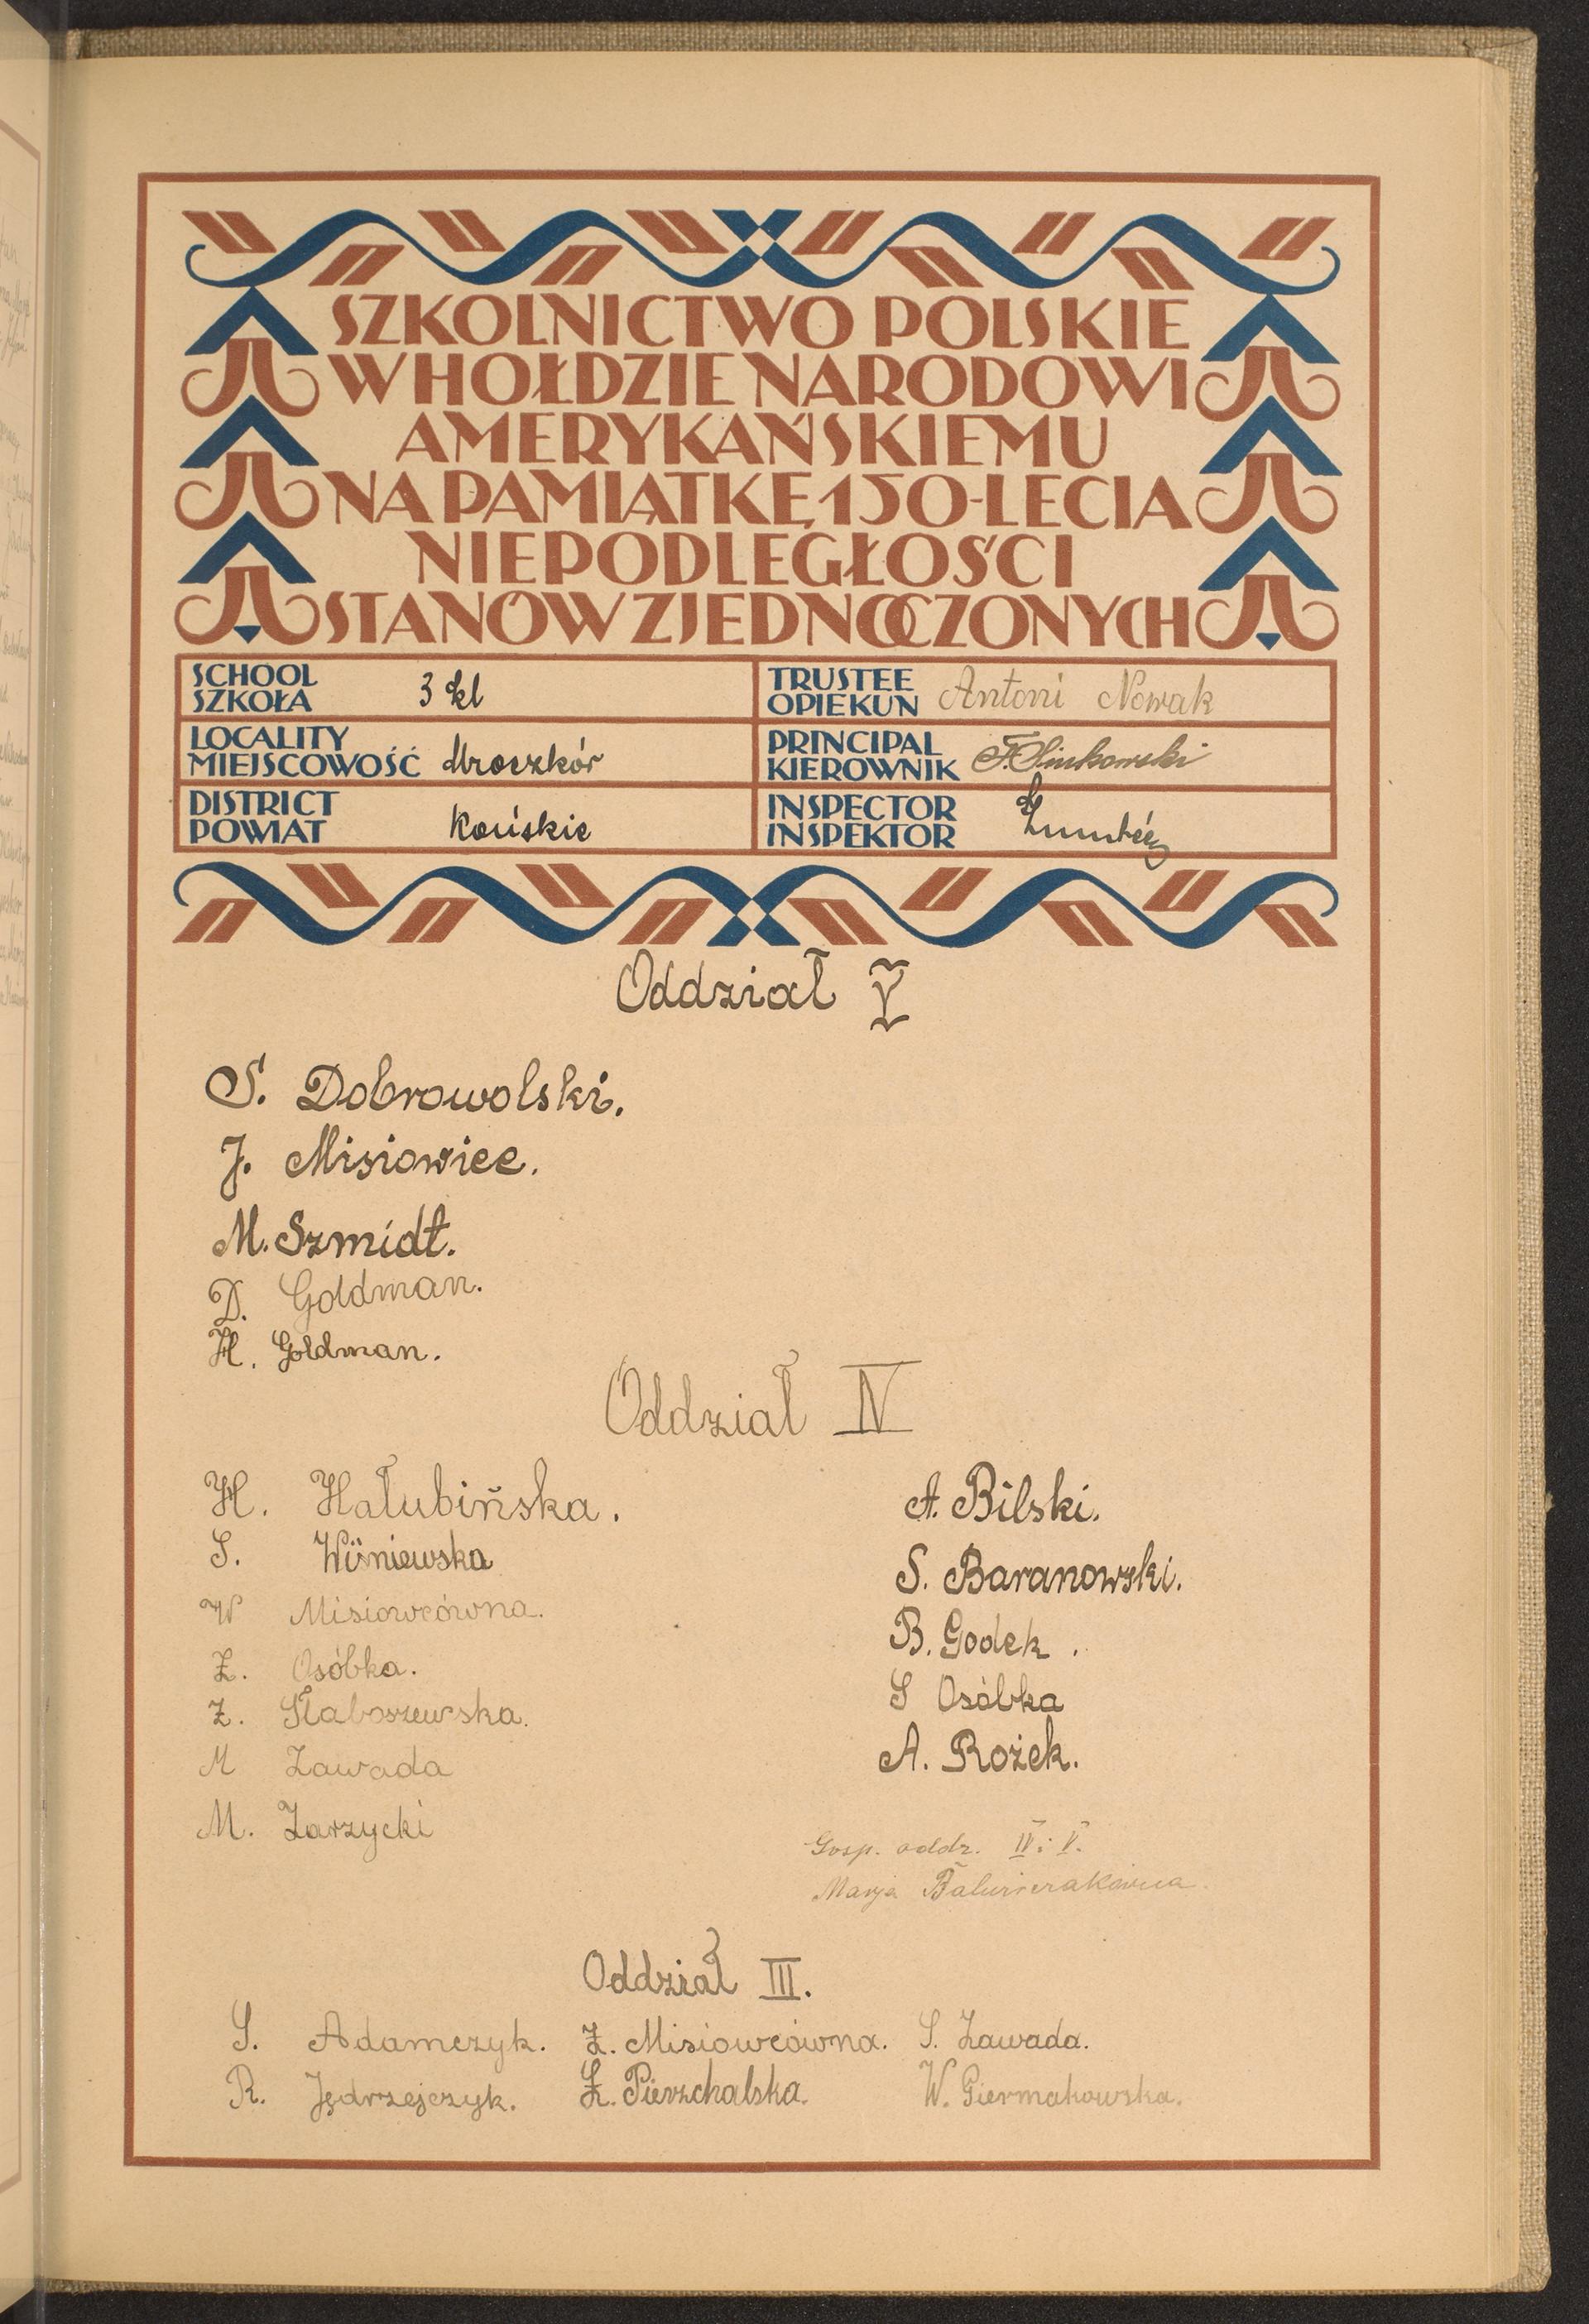 SZKOLNICTWO POLSKIE
W HOŁDZIE NARODOWI
AMERYKAŃSKIEMU
NA PAMIĄTKĘ 150-LECIA
NIEPODLEGŁOŚCI
STANÓW ZJEDNOCZONYCH
SCHOOL
SZKOŁA 3 kl
TRUSTEE
OPIEKUN Antoni Nowak
LOCALITY
MIEJSCOWOŚĆ Mroczków
PRINCIPAL
KIEROWNIK
DISTRICT
POWIAT Końskie
INSPECTOR
INSPEKTOR
Oddział V
S. Dobrowolski.
J. Misiowiec.
M. Szmidt.
D. Goldman.
H. Goldman.
Oddział IV
H. Hałubińska.
S. Wiśniewska
W Misiowcówna.
Z. Osóbka.
Z. Słaboszewska.
M Zawada
M. Zarzycki
A. Bilski.
S. Baranowski.
B. Godek.
S Osóbka
A. Rożek.
Gosp. oddz. IV i V.
Marja
Oddział III.
S. Adamczyk. Z. Misiowcówna. S. Zawada.
R. Jędrzejczyk. Z. Pierzchalska. W. Giermakowska.